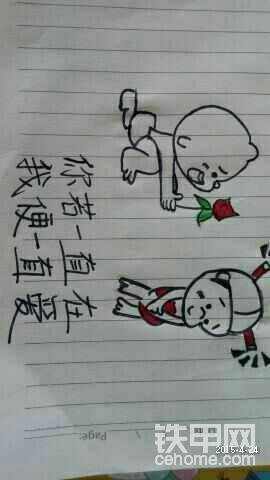 你若一直在
我便一直爱
Page:
铁甲网
cehome.com
2015-4-24